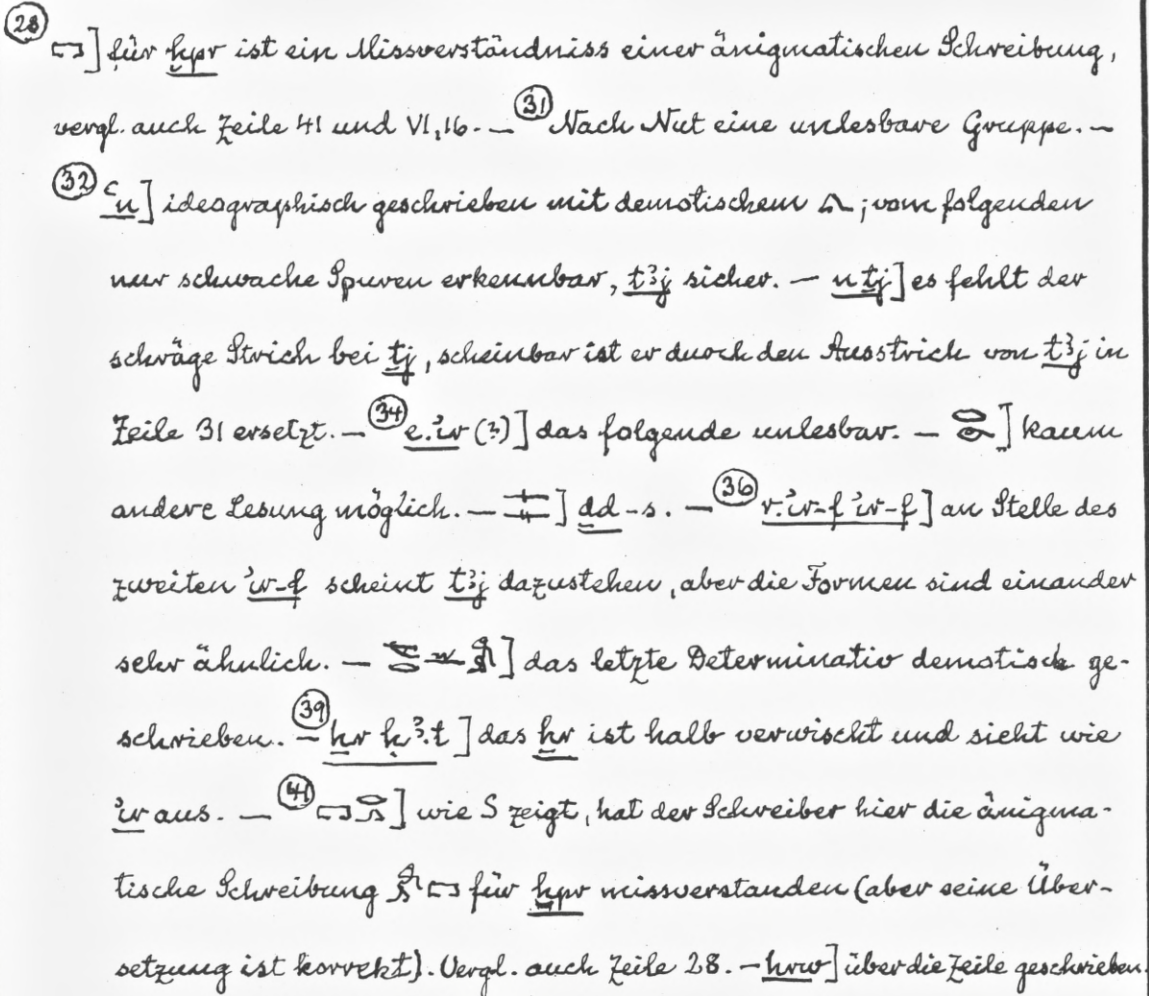 (28) 𓉐] für ḫpr ist ein Missverständniss einer änigmatischen Schreibung,
vergl. auch Zeile 41 und VI,16. — (31) Nach Nut eine unlesbare Gruppe. —
(32) ꜥn] ideographisch geschrieben mit demotischem 𓂻; vom folgenden
nur schwache Spuren erkennbar, tꜣj sicher. — n tj] es fehlt der
schräge Strich bei tj, scheinbar ist er durch den Ausstrich von tꜣj in
Zeile 31 ersetzt. — (34) e.ꞽr (?)] das folgende unlesbar. — ] kaum
andere Lesung möglich. — ] dd-s. — (36) r.ꞽr-f ꞽr-f] an Stelle des
zweiten ꞽr-f scheint tꜣj dazustehen, aber die Formen sind einander
sehr ähnlich. — ] das letzte Determinativ demotisch ge-
schrieben. — (39) ḫr kꜣ.t] das ḫr ist halb verwischt und sieht wie
ꞽr aus. — (41) ] wie S zeigt, hat der Schreiber hier die änigma-
tische Schreibung für ḫpr missverstanden (aber seine Über-
setzung ist korrekt). Vergl. auch Zeile 28. — hrw] über die Zeile geschrieben.